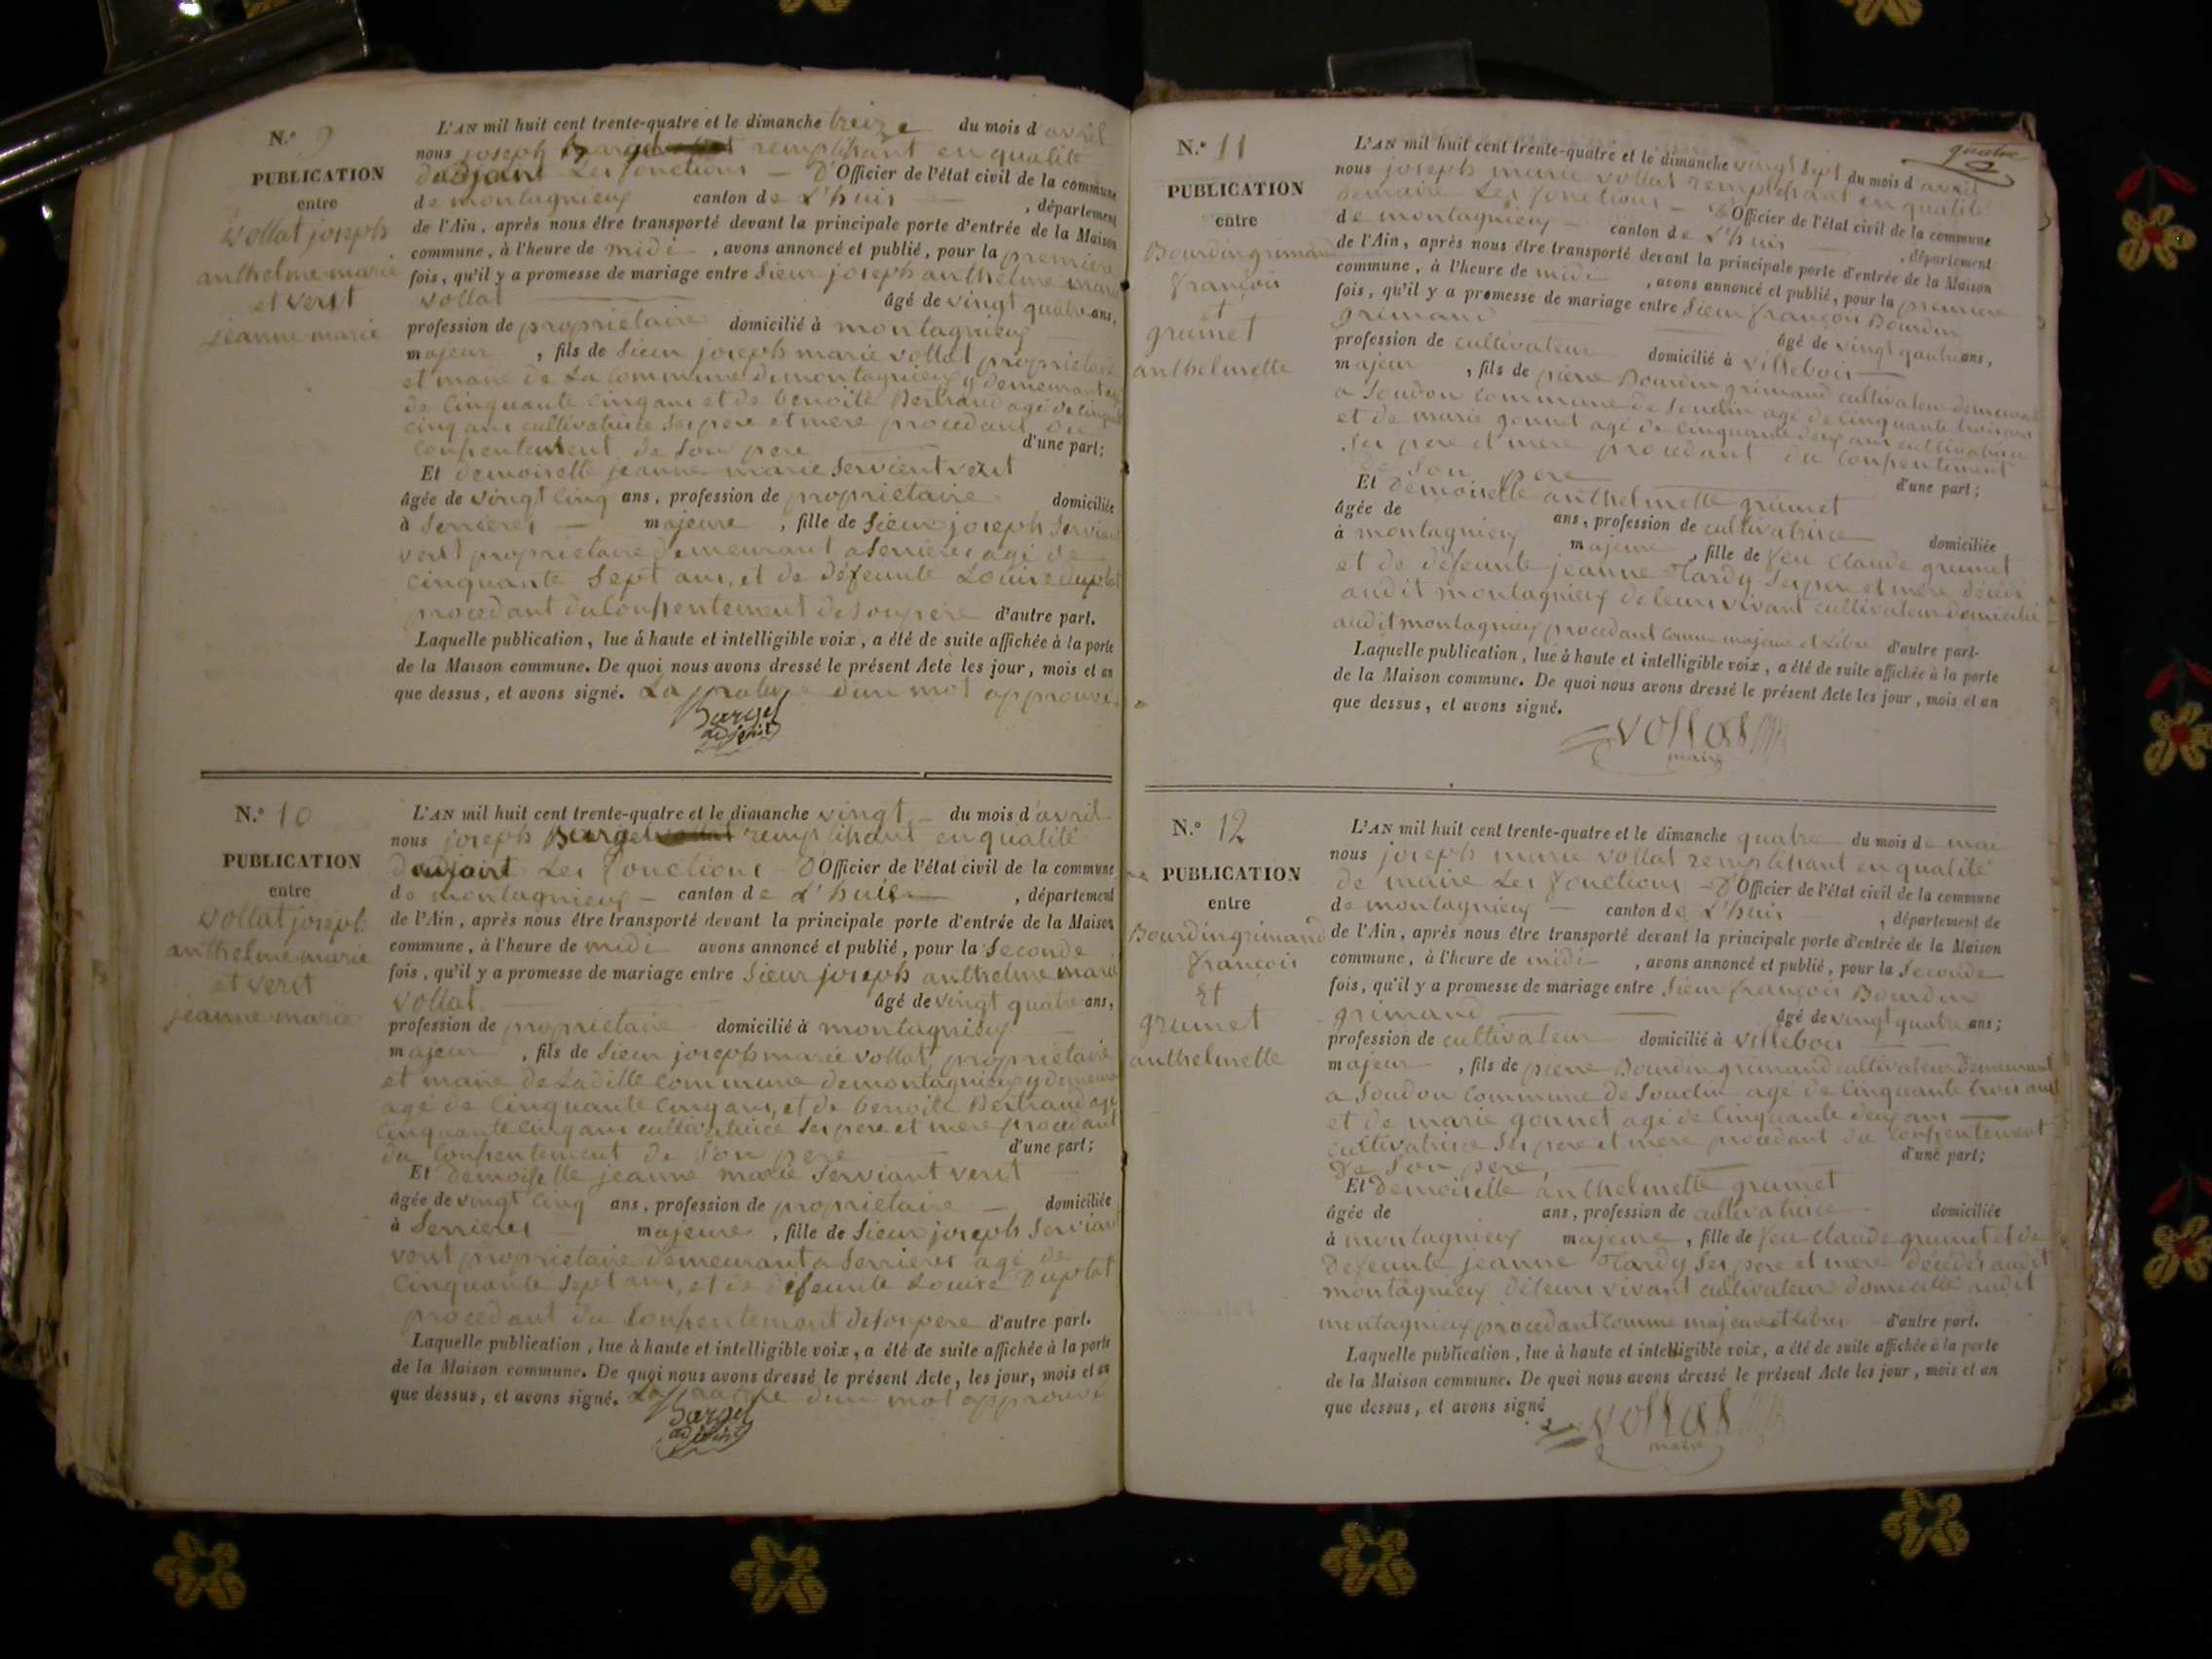 N.° 9
PUBLICATION
entre
vollat joseph
anthelme marie
et verit
jeanne marie
L'AN mil huit cent trente-quatre et le dimanche treize du mois d'avril
nous joseph Barget remplissant en qualité
dadjoint Les fonctions — D'Officier de l'état civil de la commune
de montagnieux canton de L'huis , département
de l'Ain, après nous être transporté devant la principale porte d'entrée de la Maison
commune, à l'heure de midi , avons annoncé et publié, pour la premiere
fois, qu'il y a promesse de mariage entre Sieur joseph anthelme marie
vollat âgé de vingt quatre ans,
profession de proprietaire domicilié à montagnieux
majeur , fils de Sieur joseph marie vollat proprietaire
et maire de La commune de montagnieux y demeurant agé
de Cinquante Cinq ans et de benoite Bertrand agé de Cinquante
cinq ans cultivatrice Ses pere et mere procedant du
consentement de Son pere d'une part;
Et demoiselle jeanne marie Servient verit
âgée de vingt Cinq ans, profession de proprietaire domiciliée
à Serrieres — majeure , fille de Sieur joseph Serviant
verit proprietaire demeurant a Serrieres agé de
cinquante Sept ans, et de défeunte Louise duplat
procedant du Consentement de Son pere d'autre part.
Laquelle publication, lue à haute et intelligible voix, a été de suite affichée à la porte
de la Maison commune. De quoi nous avons dressé le présent Acte les jour, mois et an
que dessus, et avons signé. La rature d'un mot approuvé
Barget
adjoint
N.° 10
PUBLICATION
entre
vollat joseph
anthelme marie
et verit
jeanne marie
L'AN mil huit cent trente-quatre et le dimanche vingt — du mois d'avril
nous joseph Barget remplissant en qualité
dadjoint Les fonctions D'Officier de l'état civil de la commune
de montagnieux — canton de L'huis — , département
de l'Ain, après nous être transporté devant la principale porte d'entrée de la Maison
commune, à l'heure de midi avons annoncé et publié, pour la Seconde
fois, qu'il y a promesse de mariage entre Sieur joseph anthelme marie
vollat âgé de vingt quatre ans,
profession de proprietaire domicilié à montagnieux
majeur , fils de Sieur joseph marie vollat, proprietaire
et maire de Laditte Commune de montagnieux y demeurant
agé de Cinquante Cinq ans, et de benoite Bertrand agé
Cinquante Cinq ans cultivatrice Ses pere et mere procedant
du consentement de Son pere d'une part;
Et Demoiselle jeanne marie Serviant verit
âgée de vingt Cinq ans, profession de proprietaire — domiciliée
à Serrieres majeure , fille de Sieur joseph Serviant
verit proprietaire demeurant a Serrieres agé de
Cinquante Sept ans, et de défeunte Louise Duplat
procedant du Consentement de Son pere d'autre part.
Laquelle publication, lue à haute et intelligible voix, a été de suite affichée à la porte
de la Maison commune. De quoi nous avons dressé le présent Acte, les jour, mois et an
que dessus, et avons signé. La rature d'un mot approuvé
Barget
adjoint
quatre
N.° 11
PUBLICATION
entre
Bourdin grimand
françois
et
grumet
anthelmette
L'AN mil huit cent trente-quatre et le dimanche vingt Sept du mois d'avril
nous joseph marie vollat remplissant en qualité
de maire Les fonctions — D'Officier de l'état civil de la commune
de montagnieux — canton de L'huis , département
de l'Ain, après nous être transporté devant la principale porte d'entrée de la Maison
commune, à l'heure de midi , avons annoncé et publié, pour la premiere
fois, qu'il y a promesse de mariage entre Sieur françois Bourdin
grimand âgé de vingt quatre ans,
profession de cultivateur domicilié à villebois
majeur , fils de pierre Bourdin grimand cultivateur demeurant
a Soudon commune de Soudin agé de Cinquante trois ans
et de marie gonnet agé de Cinquante deux ans cultivatrice
Ses pere et mere procedant du Consentement
de Son pere d'une part;
Et Demoiselle anthelmette grumet
âgée de ans, profession de cultivatrice domiciliée
à montagnieux majeure , fille de feu claude grumet
et de défeunte jeanne Tardy Ses pere et mere décédé
audit montagnieux de leurs vivant cultivateur domicilié
audit montagnieux procedant comme majeure et Libre d'autre part.
Laquelle publication, lue à haute et intelligible voix, a été de suite affichée à la porte
de la Maison commune. De quoi nous avons dressé le présent Acte les jour, mois et an
que dessus, et avons signé.
vollat
maire
N.° 12
PUBLICATION
entre
Bourdin grimand
françois
Et
grumet
anthelmette
L'AN mil huit cent trente-quatre et le dimanche quatre du mois de mai
nous joseph marie vollat remplissant en qualité
de maire Les fonctions — D'Officier de l'état civil de la commune
de montagnieux — canton de L'huis , département de
de l'Ain, après nous être transporté devant la principale porte d'entrée de la Maison
commune, à l'heure de midi , avons annoncé et publié, pour la Seconde
fois, qu'il y a promesse de mariage entre Sieur françois Bourdin
grimand âgé de vingt quatre ans;
profession de cultivateur domicilié à villebois
majeur , fils de pierre Bourdin grimand cultivateur Demeurant
a Soudon Commune de Soudin agé de Cinquante trois ans
et de marie gonnet agé de Cinquante deux ans
cultivatrice Ses pere et mere procedant du consentement
De Son pere d'une part;
Et Demoiselle anthelmette grumet
âgée de ans, profession de cultivatrice domiciliée
à montagnieux majeure , fille de feu claude grumet et de
Défeunte jeanne Tardy Ses pere et mere décédés audit
montagnieux de leurs vivant cultivateur domicilié audit
montagnieux procedant Comme majeure et Libre d'autre part.
Laquelle publication, lue à haute et intelligible voix, a été de suite affichée à la porte
de la Maison commune. De quoi nous avons dressé le présent Acte les jour, mois et an
que dessus, et avons signé
vollat
maire